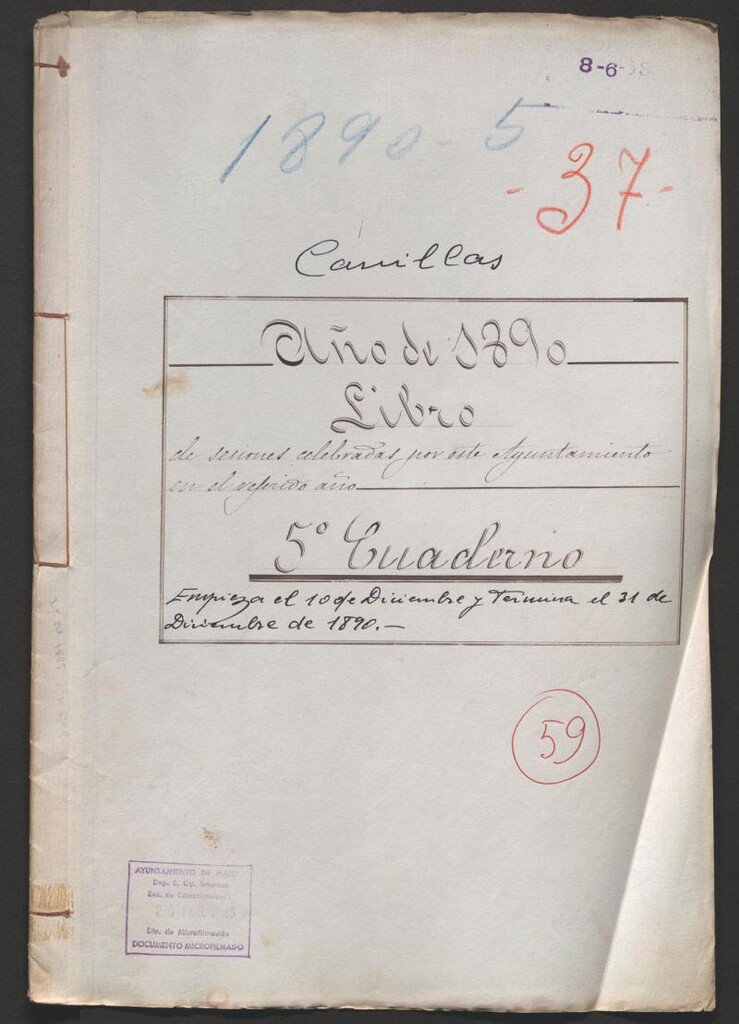 8-6-
1890-5
-37-
Canillas
Año de 1890
Libro
de sesiones celebradas por este Ayuntamiento
en el referido año
5º Cuaderno
Empieza el 10 de Diciembre y Termina el 31 de
Diciembre de 1890.—
59
AYUNTAMIENTO DE
Dep. E. Op. Internas
Sec. de
Div. de Microfilmación
DOCUMENTO MICROFILMADO